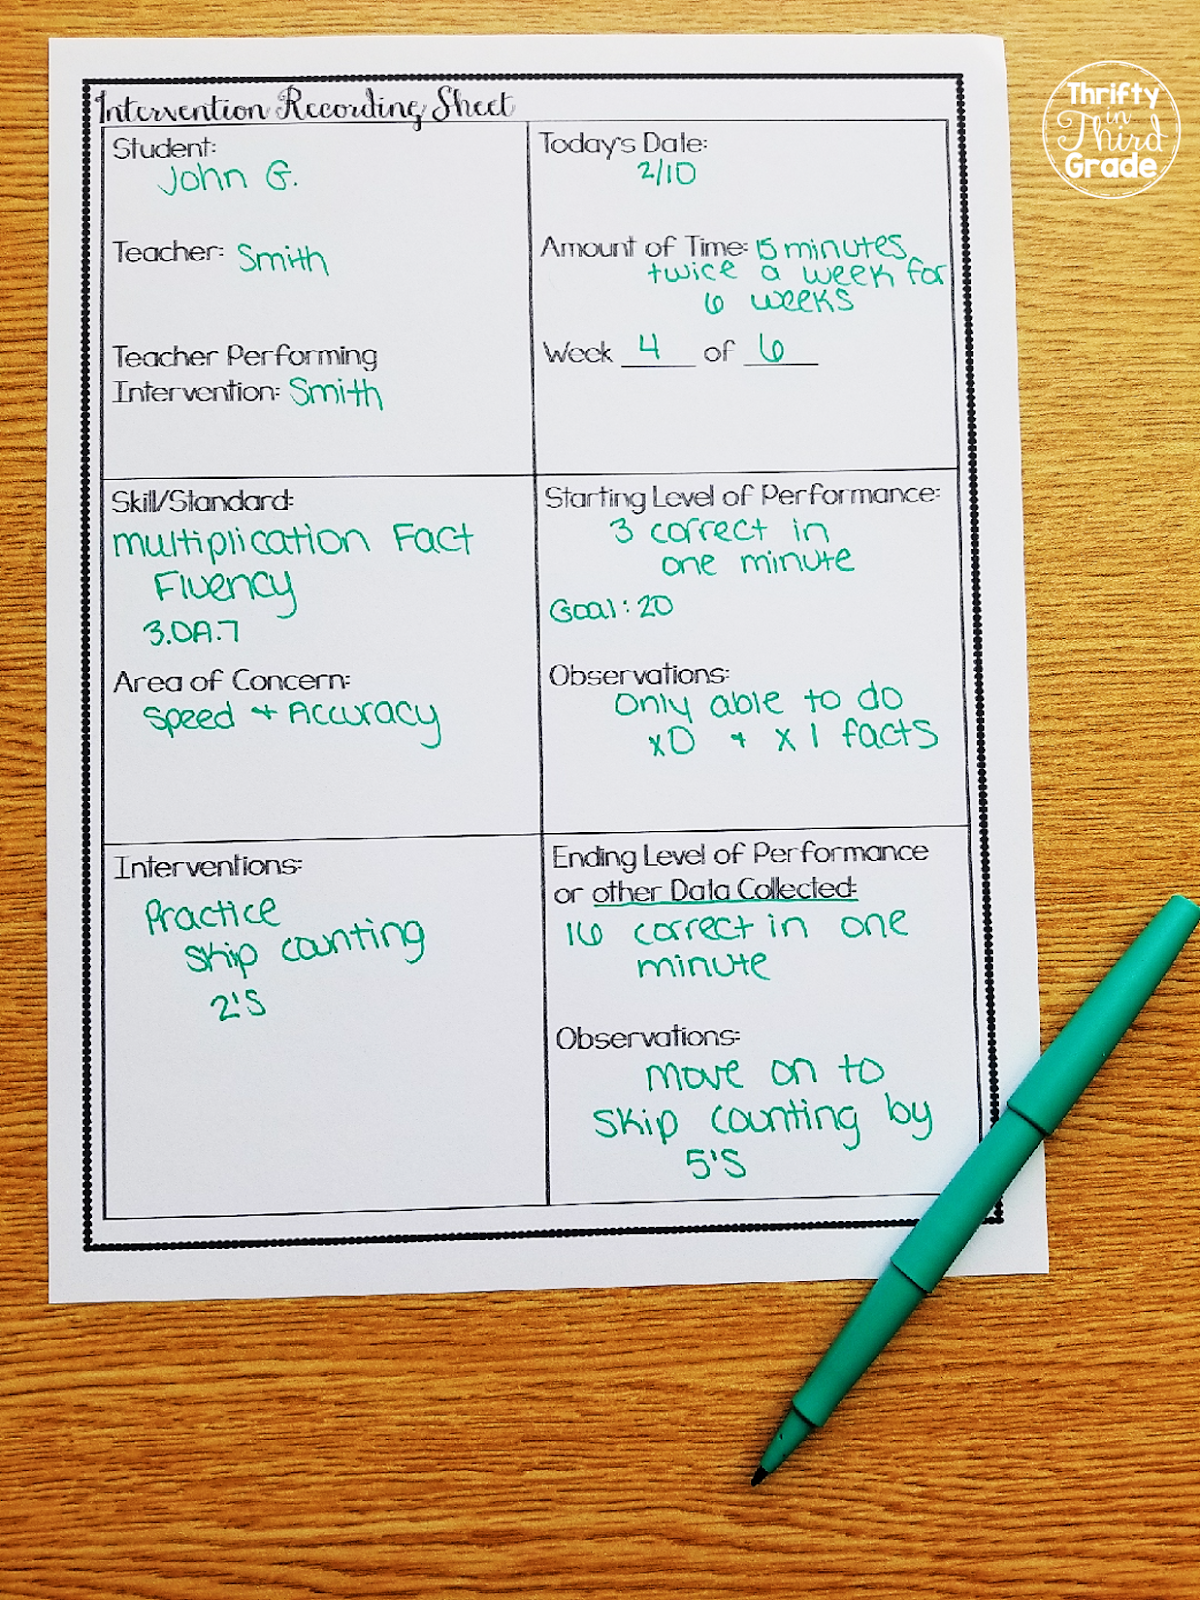 Intervention Recording Sheet
Student:
John G.
Teacher: Smith
Teacher Performing
Intervention: Smith
Today's Date:
2/10
Amount of Time: 15 minutes
twice a week for
6 weeks
Week 4 of 6
Skill/Standard:
multiplication Fact
Fluency
3.OA.7
Area of Concern:
Speed + Accuracy
Starting Level of Performance:
3 correct in
one minute
Goal: 20
Observations:
Only able to do
x0 + x1 facts
Interventions:
Practice
skip counting
2's
Ending Level of Performance
or other Data Collected:
16 correct in one
minute
Observations:
move on to
skip counting by
5's
Thrifty
in
Third
Grade